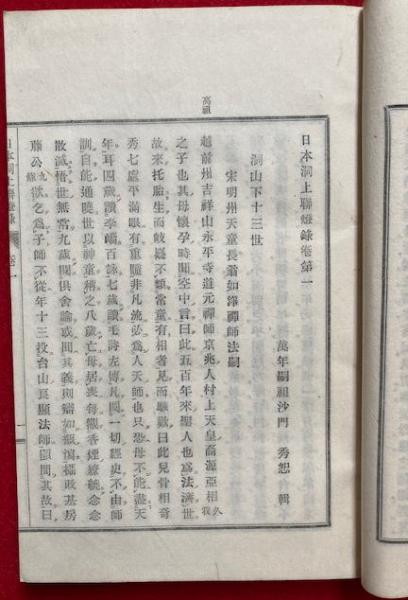 日本洞上聯燈錄卷第一
萬年嗣祖沙門 秀恕 輯
洞山下十三世
宋明州天童長翁如淨禪師法嗣
高祖
越前州吉祥山永平寺道元禪師京兆人村上天皇裔源亞相久我
之子也其母懷孕時聞空中言曰此五百年來聖人也爲法濟世
故來托胎生而岐嶷不類常童有相者見而驚歎曰此兒骨相奇
秀七處平滿眼有重瞳非凡流必爲人天師也只恐母不能盡天
年耳四歲讀李嶠百詠七歲讀毛詩左傳凡閱一切經史不由師
訓自能通曉世以神童稱之八歲亡母居喪每觀香煙繚繞念念
散滅悟世無常九歲閱俱舍論或問其義則辯如瓶瀉攝政基房
藤公欲乞爲子師不從年十三投台山良顯法師顯問其故曰
日本洞上聯燈錄 卷一